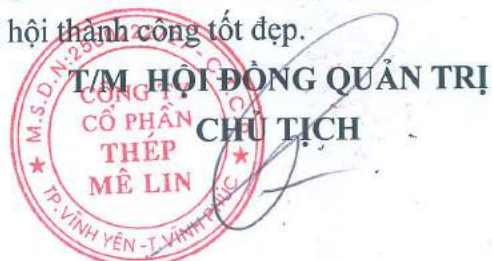 hội thành công tốt đẹp.
T/M HỘI ĐỒNG QUẢN TRỊ
CHỦ TỊCH
CÔNG TY
CỔ PHẦN
THÉP
MÊ LIN
M.S.D.N:
TP. VĨNH YÊN - T. VĨNH PHÚC